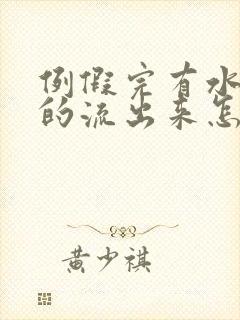 例假完有水
的流出来怎
黄少祺